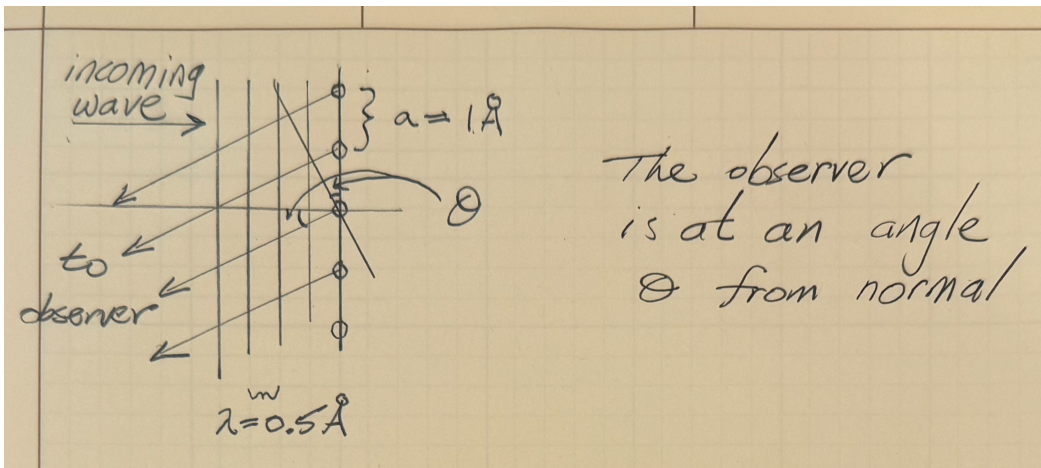 incoming
wave
a = 1Å
θ
to
observer
λ=0.5Å
The observer
is at an angle
θ from normal